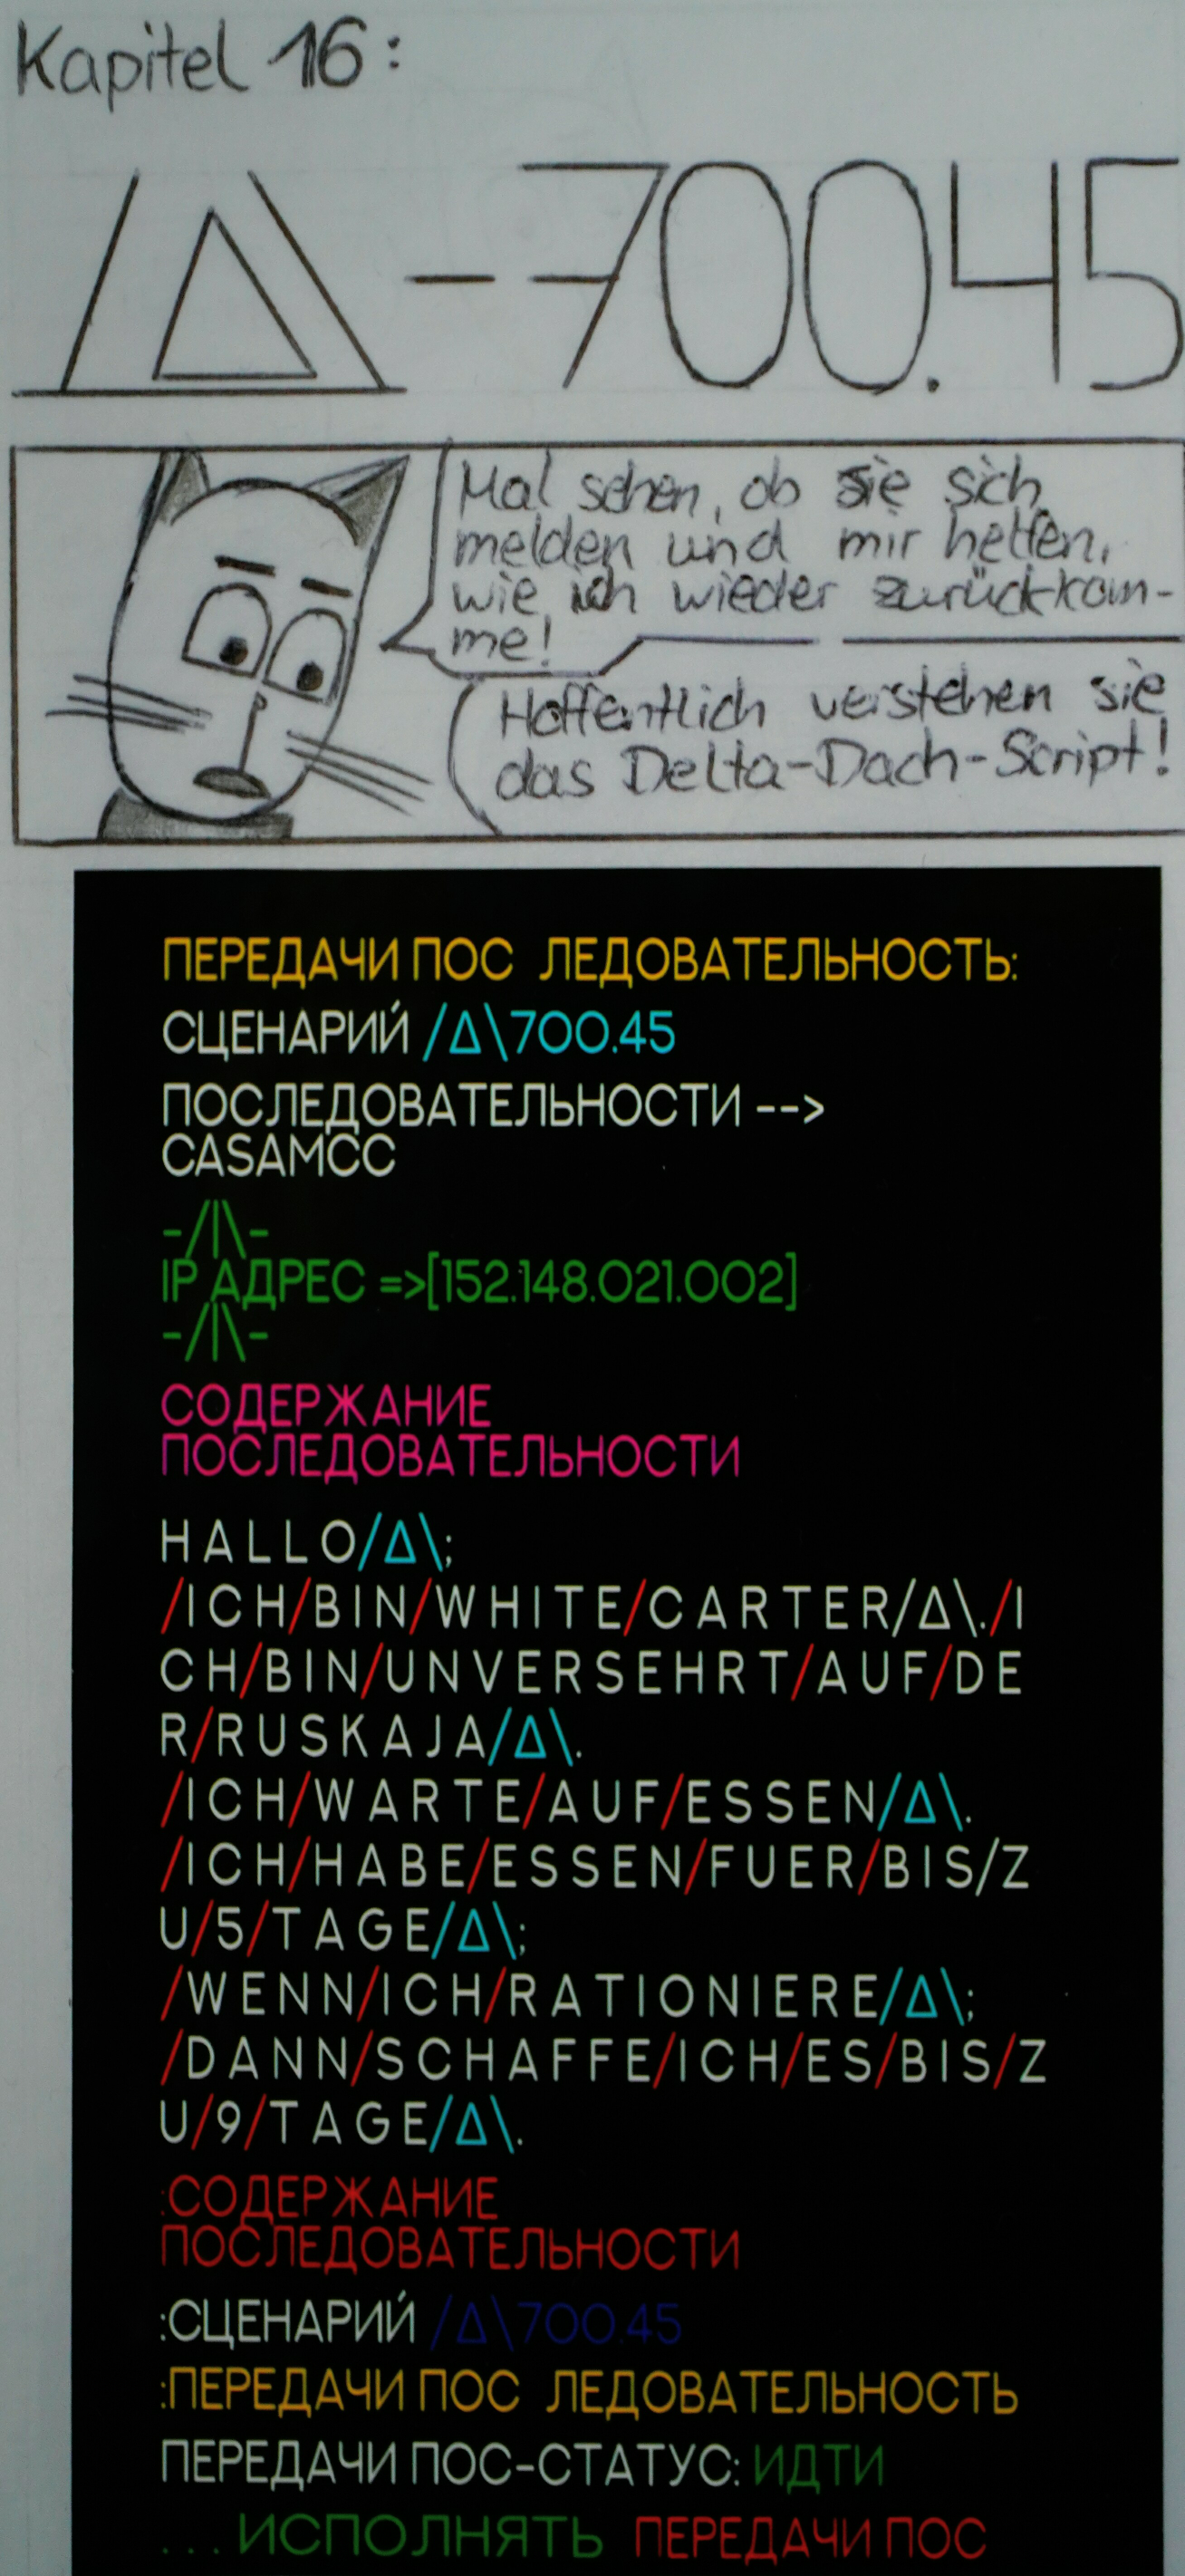 Kapitel 16:
/Δ\-700.45
Mal sehen, ob sie sich
melden und mir helfen,
wie ich wieder zurückkom-
me!
Hoffentlich verstehen sie
das Delta-Dach-Script!
ПЕРЕДАЧИ ПОС ЛЕДОВАТЕЛЬНОСТЬ:
СЦЕНАРИЙ /Δ\700.45
ПОСЛЕДОВАТЕЛЬНОСТИ -->
CASAMCC
-/|\-
IP АДРЕС =>[152.148.021.002]
-/|\-
СОДЕРЖАНИЕ
ПОСЛЕДОВАТЕЛЬНОСТИ
HALLO/Δ\;
/ICH/BIN/WHITE/CARTER/Δ\./I
CH/BIN/UNVERSEHRT/AUF/DE
R/RUSKAJA/Δ\.
/ICH/WARTE/AUF/ESSEN/Δ\.
/ICH/HABE/ESSEN/FUER/BIS/Z
U/5/TAGE/Δ\;
/WENN/ICH/RATIONIERE/Δ\;
/DANN/SCHAFFE/ICH/ES/BIS/Z
U/9/TAGE/Δ\.
:СОДЕРЖАНИЕ
ПОСЛЕДОВАТЕЛЬНОСТИ
:СЦЕНАРИЙ /Δ\700.45
:ПЕРЕДАЧИ ПОС ЛЕДОВАТЕЛЬНОСТЬ
ПЕРЕДАЧИ ПОС-СТАТУС: ИДТИ
...ИСПОЛНЯТЬ ПЕРЕДАЧИ ПОС